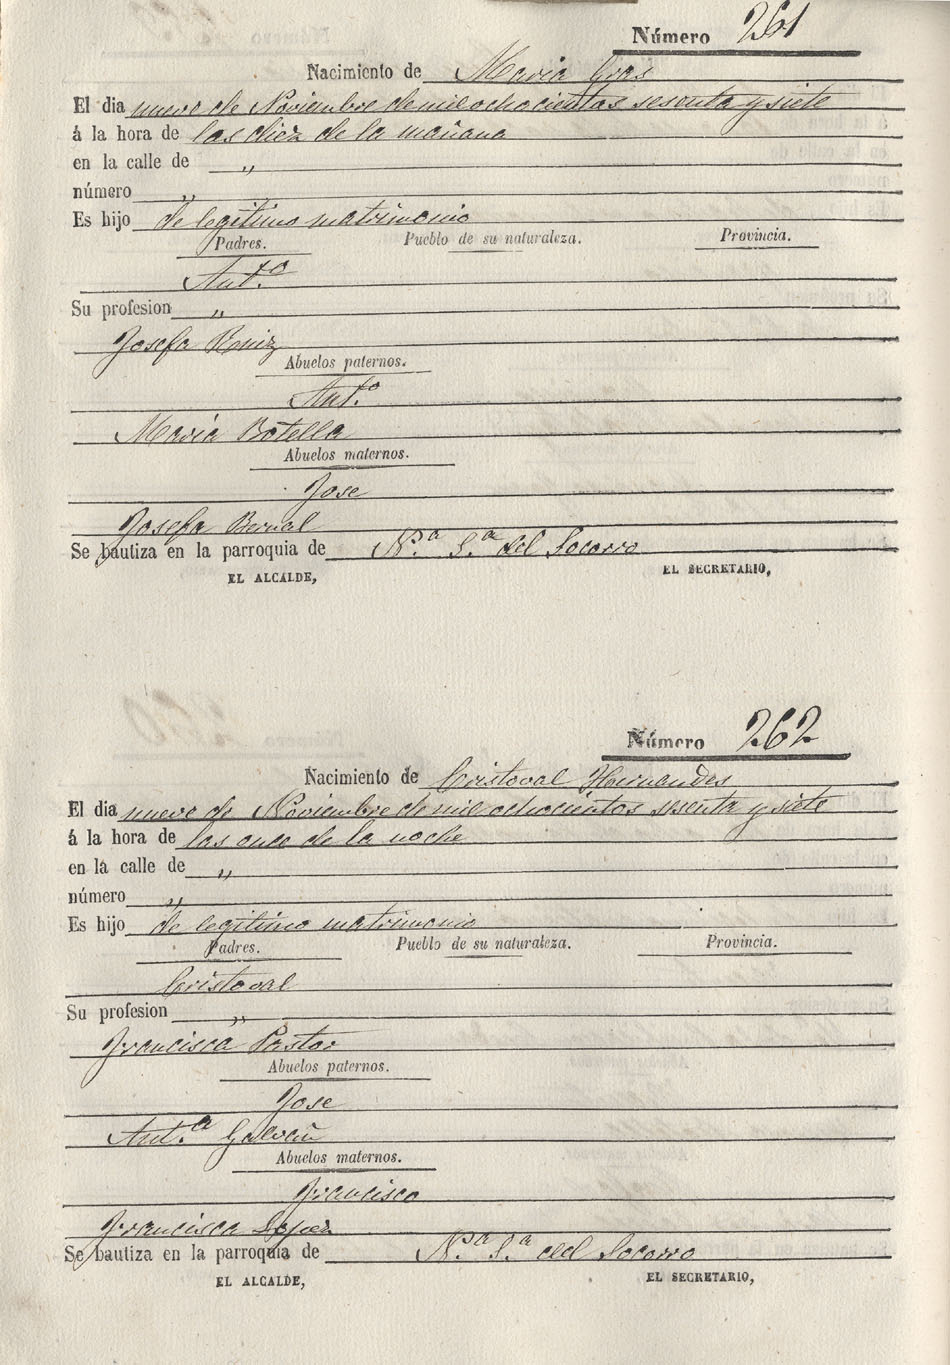 Número 261
Nacimiento de Maria Gras
El dia nueve de Noviembre de mil ochocientos sesenta y siete
á la hora de las diez de la mañana
en la calle de „
número „
Es hijo de legitimo matrimonio
Padres. Pueblo de su naturaleza. Provincia.
Ant.º
Su profesion „
Josefa Ruiz
Abuelos paternos.
Ant.º
Maria Botella
Abuelos maternos.
Jose
Josefa Bernal
Se bautiza en la parroquia de N.ª S.ª del Socorro
EL ALCALDE, EL SECRETARIO,
Número 262
Nacimiento de Cristoval Hernendes
El dia nueve de Noviembre de mil ochocientos sesenta y siete
á la hora de las once de la noche
en la calle de „
número „
Es hijo de legitimo matrimonio
Padres. Pueblo de su naturaleza. Provincia.
Cristoval
Su profesion „
Francisca Pastor
Abuelos paternos.
Jose
Ant.ª Galvañ
Abuelos maternos.
Francisco
Francisca Lopez
Se bautiza en la parroquia de N.ª S.ª del Socorro
EL ALCALDE, EL SECRETARIO,